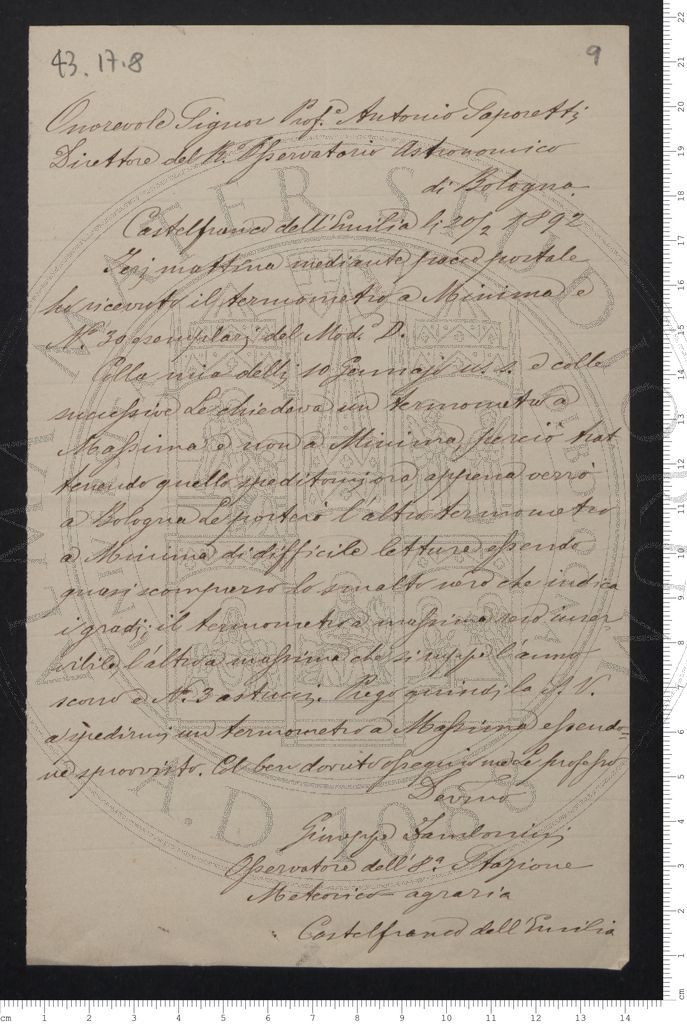 43.17.8
9
Onorevole Signor Prof.e Antonio Saporetti
Direttore del R.o Osservatorio Astronomico
di Bologna.
Castelfranco dell'Emilia li 20/2 1892
Jerj mattina mediante pacco postale
ho ricevuto il termometro a Minima e
N.o 30 esemplarj del Mod.o D.
Colla mia dellj 10 Gennajo u. s. e colle
successive Le chiedeva un termometro a
Massima e non a Minima, perciò trat
tenendo quello speditomj ora appena verrò
a Bologna Le porterò l'altro termometro
a Minima di difficile letture essendo
quasi scomparso lo smalto nero che indica
i gradj; il termometro a massima reso inser-
vibile l'altro a massima che si ruppe l'anno
scorso e N.o 3 astuccj. Prego quindj la S. V.
a spedirmj un termometro a Massima essendo=
ne sprovvisto. Col ben dovuto ossequio me Le professo
Dev.mo
Giuseppe Zamboninj
Osservatore dell'8.a Stazione
Meteorico-agraria
Castelfranco dell'Emilia
ALMA MATER STUDIORUM
A.D. 1088